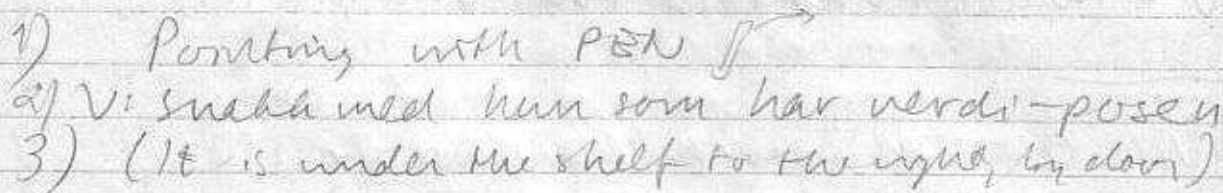 1) Pointing with PEN
2) V: snakk med hun som har verdi-posen
3) (It is under the shelf to the right, by door)